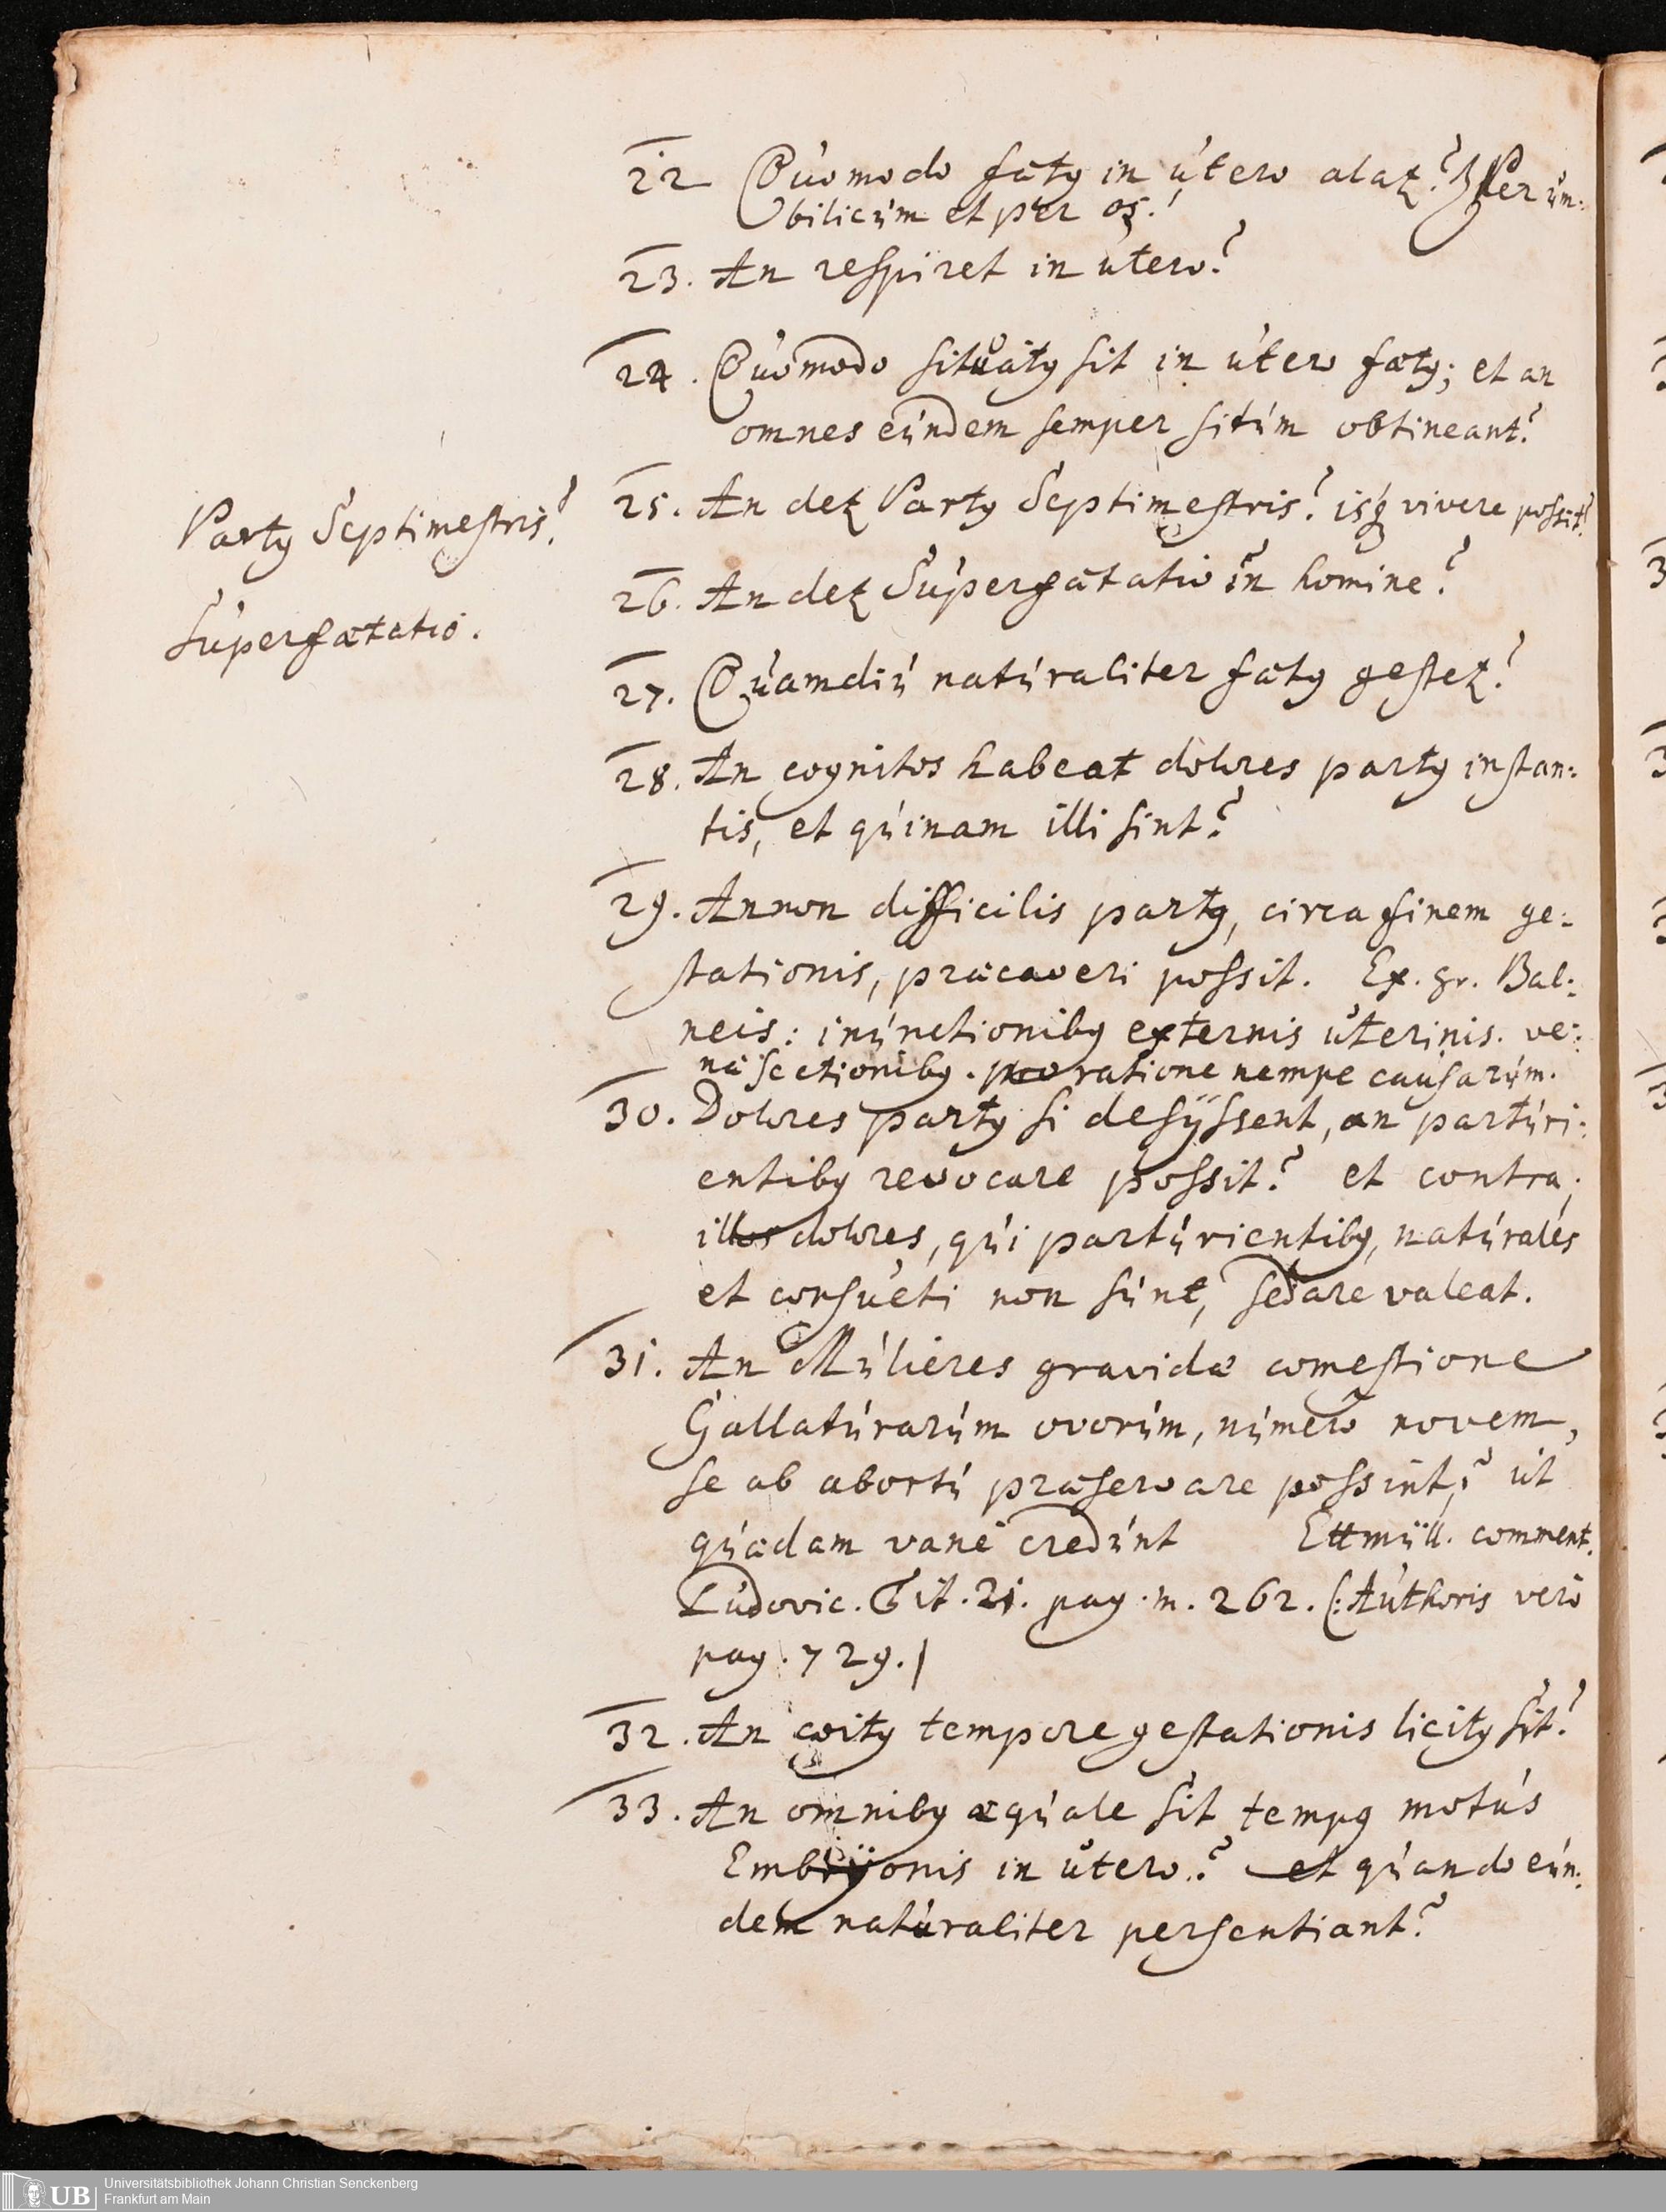 22 Quomodo fœtꝰ in útero alatꝛ? Per úm:
bilicúm et per os.
23. An respiret in útero?
24. Quomodo sitúatꝰ sit in útero fœtꝰ; et an
omnes eúndem semper sitúm obtineant?
Partꝰ Septimestris?
25. An detꝛ Partꝰ Septimestris? isq vivere possit?
26. An detꝛ Súperfœtatio in homine?
Súperfœtatio.
27. Quamdiú natúraliter fœtꝰ gestetꝛ?
28. An cognitos habeat dolores partꝰ instan:
tis, et qúinam illi sint?
29. Annon difficilis partꝰ, circa finem ge:
stationis, præcaveri possit. Ex. gr. Bal:
neis: inúnctionibꝰ externis úterinis. ve:
næsectionibꝰ. pro ratione nempe caúsarúm.
30. Dolores partꝰ si desÿssent, an partúri:
entibꝰ revocare possit? et contra;
illos dolores, qúi partúrientibꝰ, natúrales
et consúeti non súnt, sedare valeat.
31. An Múlieres gravidæ comestione
Gallatúrarúm ovorúm, número novem,
se ab abortú præservare possint,? út
qúædam vane credúnt Ettmüll. comment.
Lúdovic. Tit. 21. pag. m. 262. (: Aúthoris vero
pag. 729. |
32. An coitꝰ tempore gestationis licitꝰ sit?
33. An omnibꝰ æqúale sit tempꝰ motús
Embrÿonis in útero.? et qúando eún:
dem natúraliter persentiant?
UB
Universitätsbibliothek Johann Christian Senckenberg
Frankfurt am Main